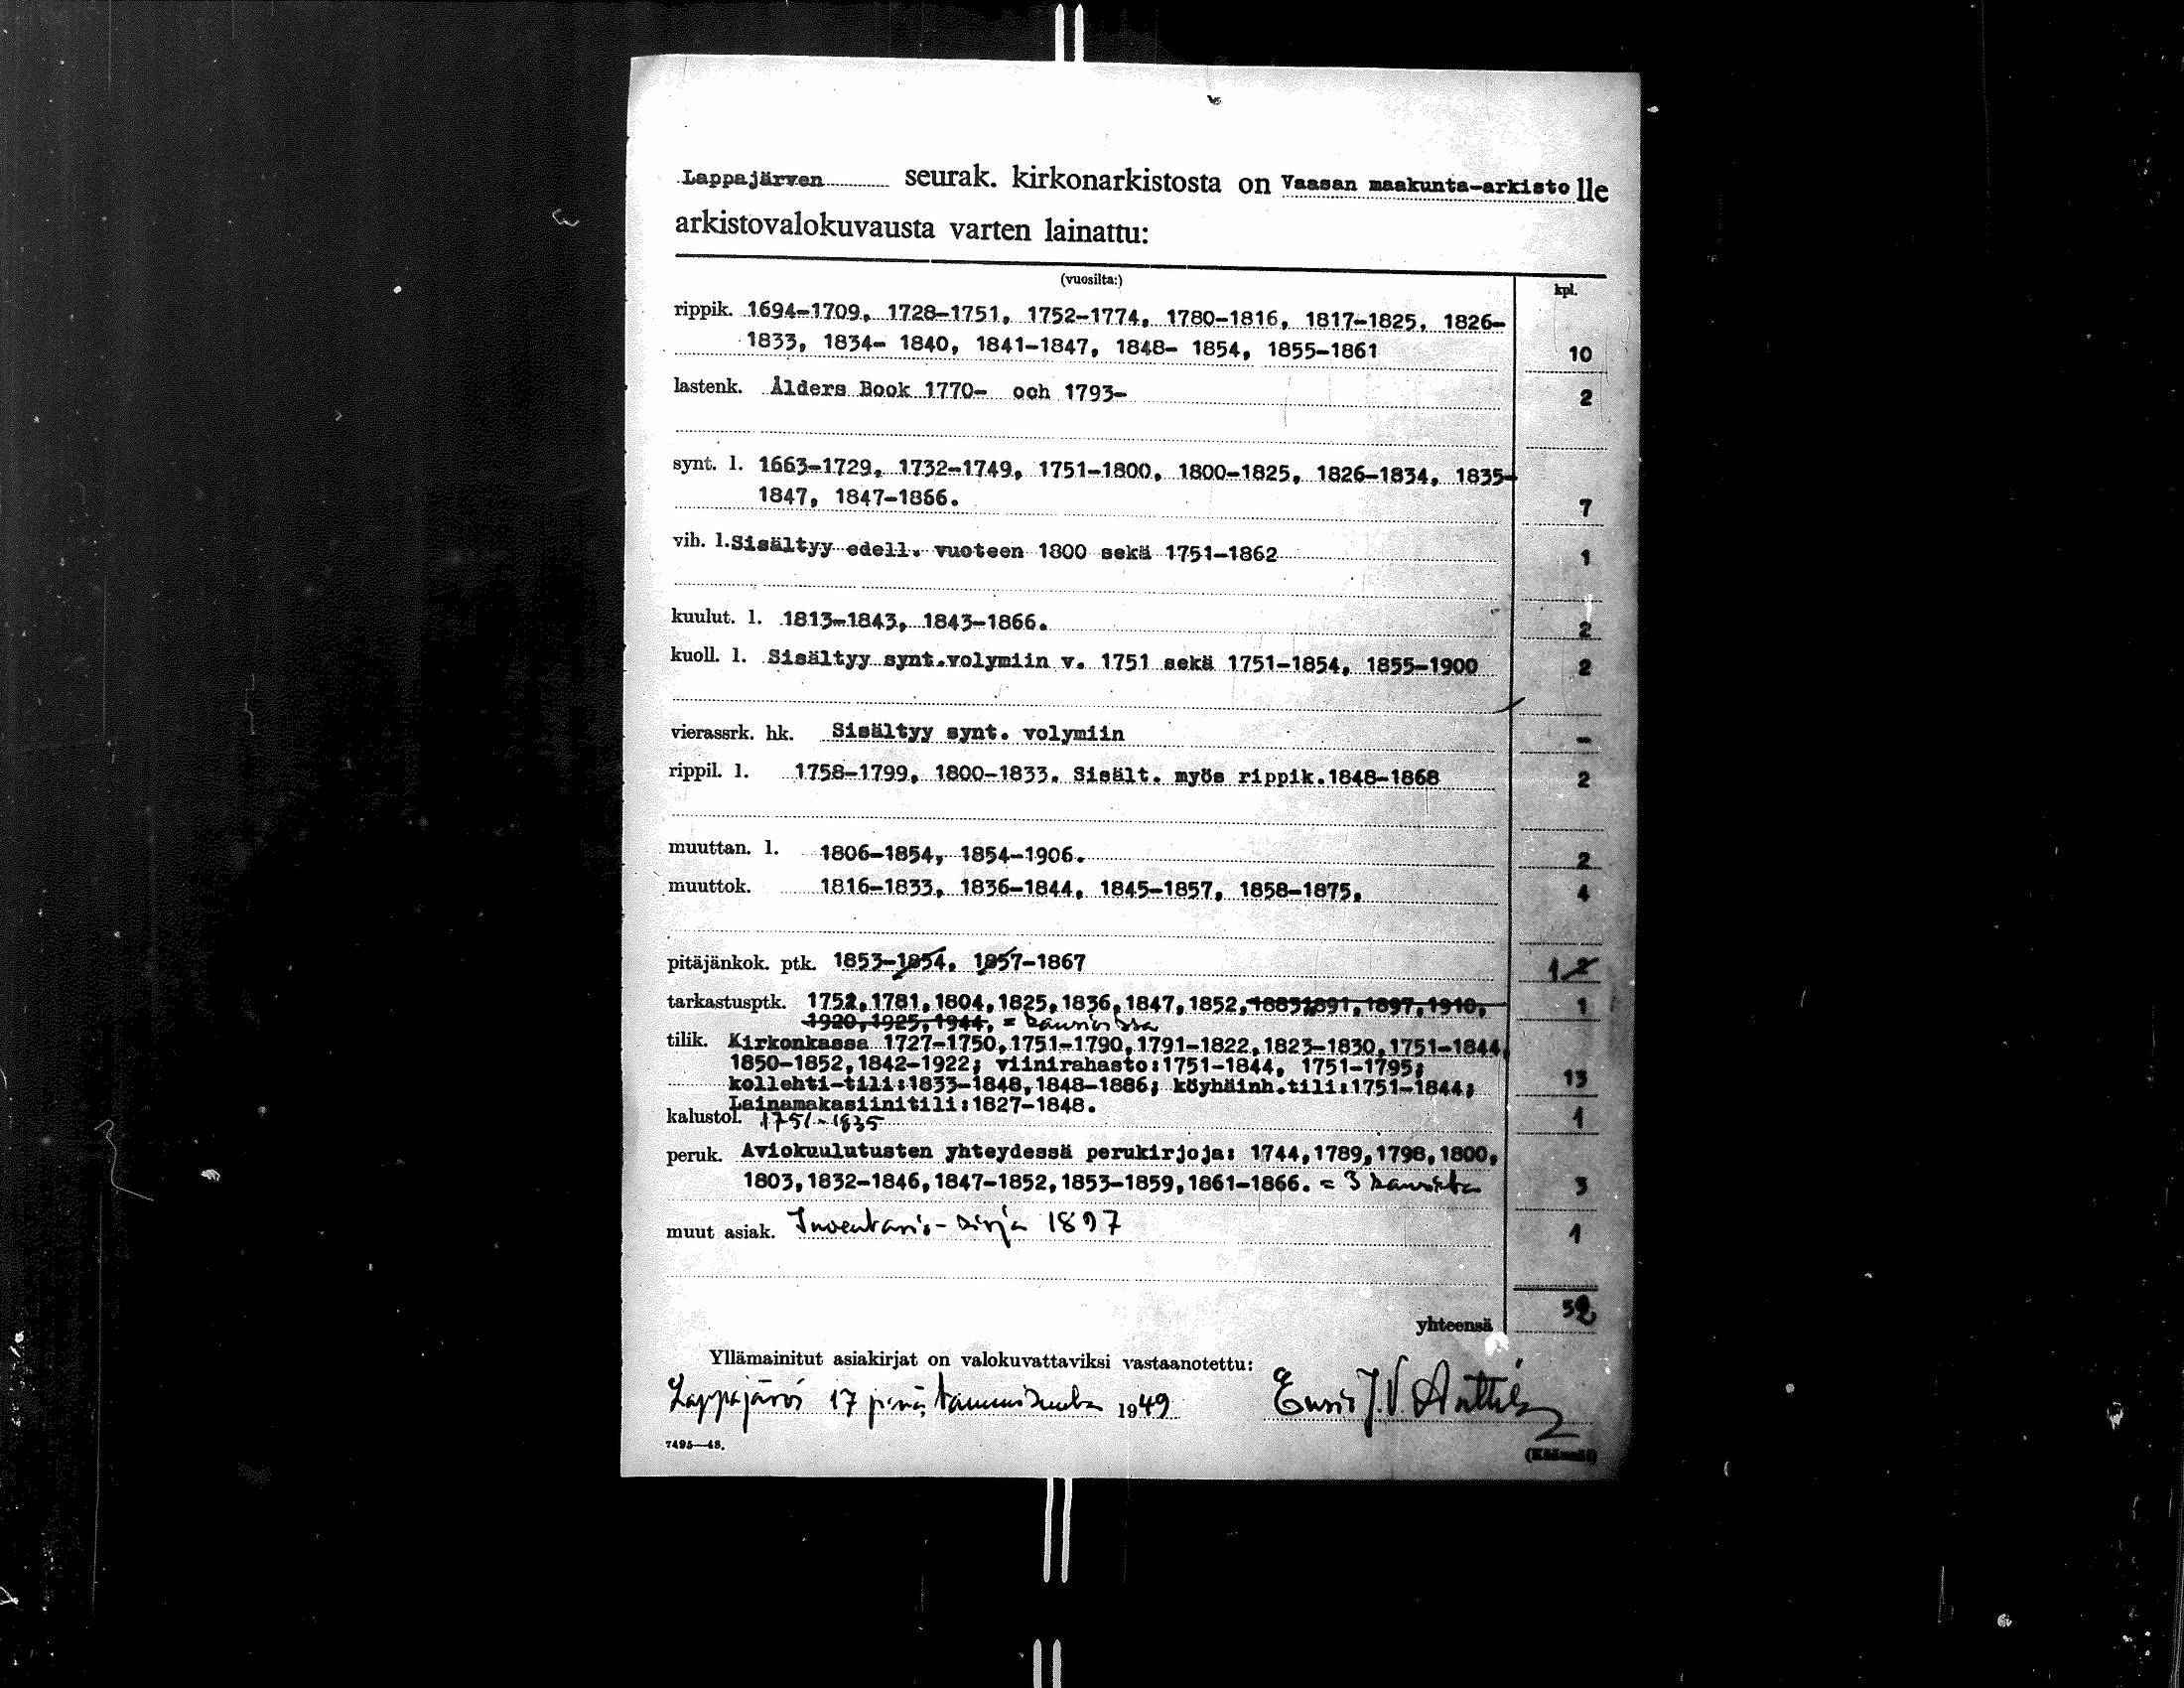 Lappajärven seurak. kirkonarkistosta on Vaasan maakunta-arkisto lle
arkistovalokuvausta varten lainattu:
(vuosilta:) kpl.
rippik. 1694-1709, 1728-1751, 1752-1774, 1780-1816, 1817-1825, 1826-
1833, 1834- 1840, 1841-1847, 1848- 1854, 1855-1861 10
lastenk. Ålders Book 1770- och 1793- 2
synt. l. 1663-1729, 1732-1749, 1751-1800, 1800-1825, 1826-1834, 1835-
1847, 1847-1866. 7
vih. l. Sisältyy edell. vuoteen 1800 sekä 1751-1862 1
kuulut. l. 1813-1843, 1843-1866. 2
kuoll. l. Sisältyy synt.volymiin v. 1751 sekä 1751-1854, 1855-1900 2
vierassrk. hk. Sisältyy synt. volymiin -
rippil. l. 1758-1799, 1800-1833. Sisält. myös rippik.1848-1868 2
muuttan. l. 1806-1854, 1854-1906. 2
muuttok. 1816-1833, 1836-1844, 1845-1857, 1858-1875, 4
pitäjänkok. ptk. 1853-1854. 1857-1867 1 2
tarkastusptk. 1752,1781,1804,1825,1836,1847,1852,1883,1891,1897,1910, 1
1920,1925,1944, =
tilik. Kirkonkassa 1727-1750,1751-1790,1791-1822,1823-1830,1751-1844,
1850-1852,1842-1922; viinirahasto:1751-1844, 1751-1795;
kollehti-tili:1833-1848,1848-1886; köyhäinh.tili:1751-1844; 13
Lainamakasiinitili:1827-1848.
kalustol. 1751-1835 1
peruk. Aviokuulutusten yhteydessä perukirjoja: 1744,1789,1798,1800,
1803,1832-1846,1847-1852,1853-1859,1861-1866. = 3 3
muut asiak. Inventario-kirja 1897 1
yhteensä 52
Yllämainitut asiakirjat on valokuvattaviksi vastaanotettu:
Lappajärvi 17 pivä tammikuuta 1949 J.V. Anttila
7495—48. (Käännä!)